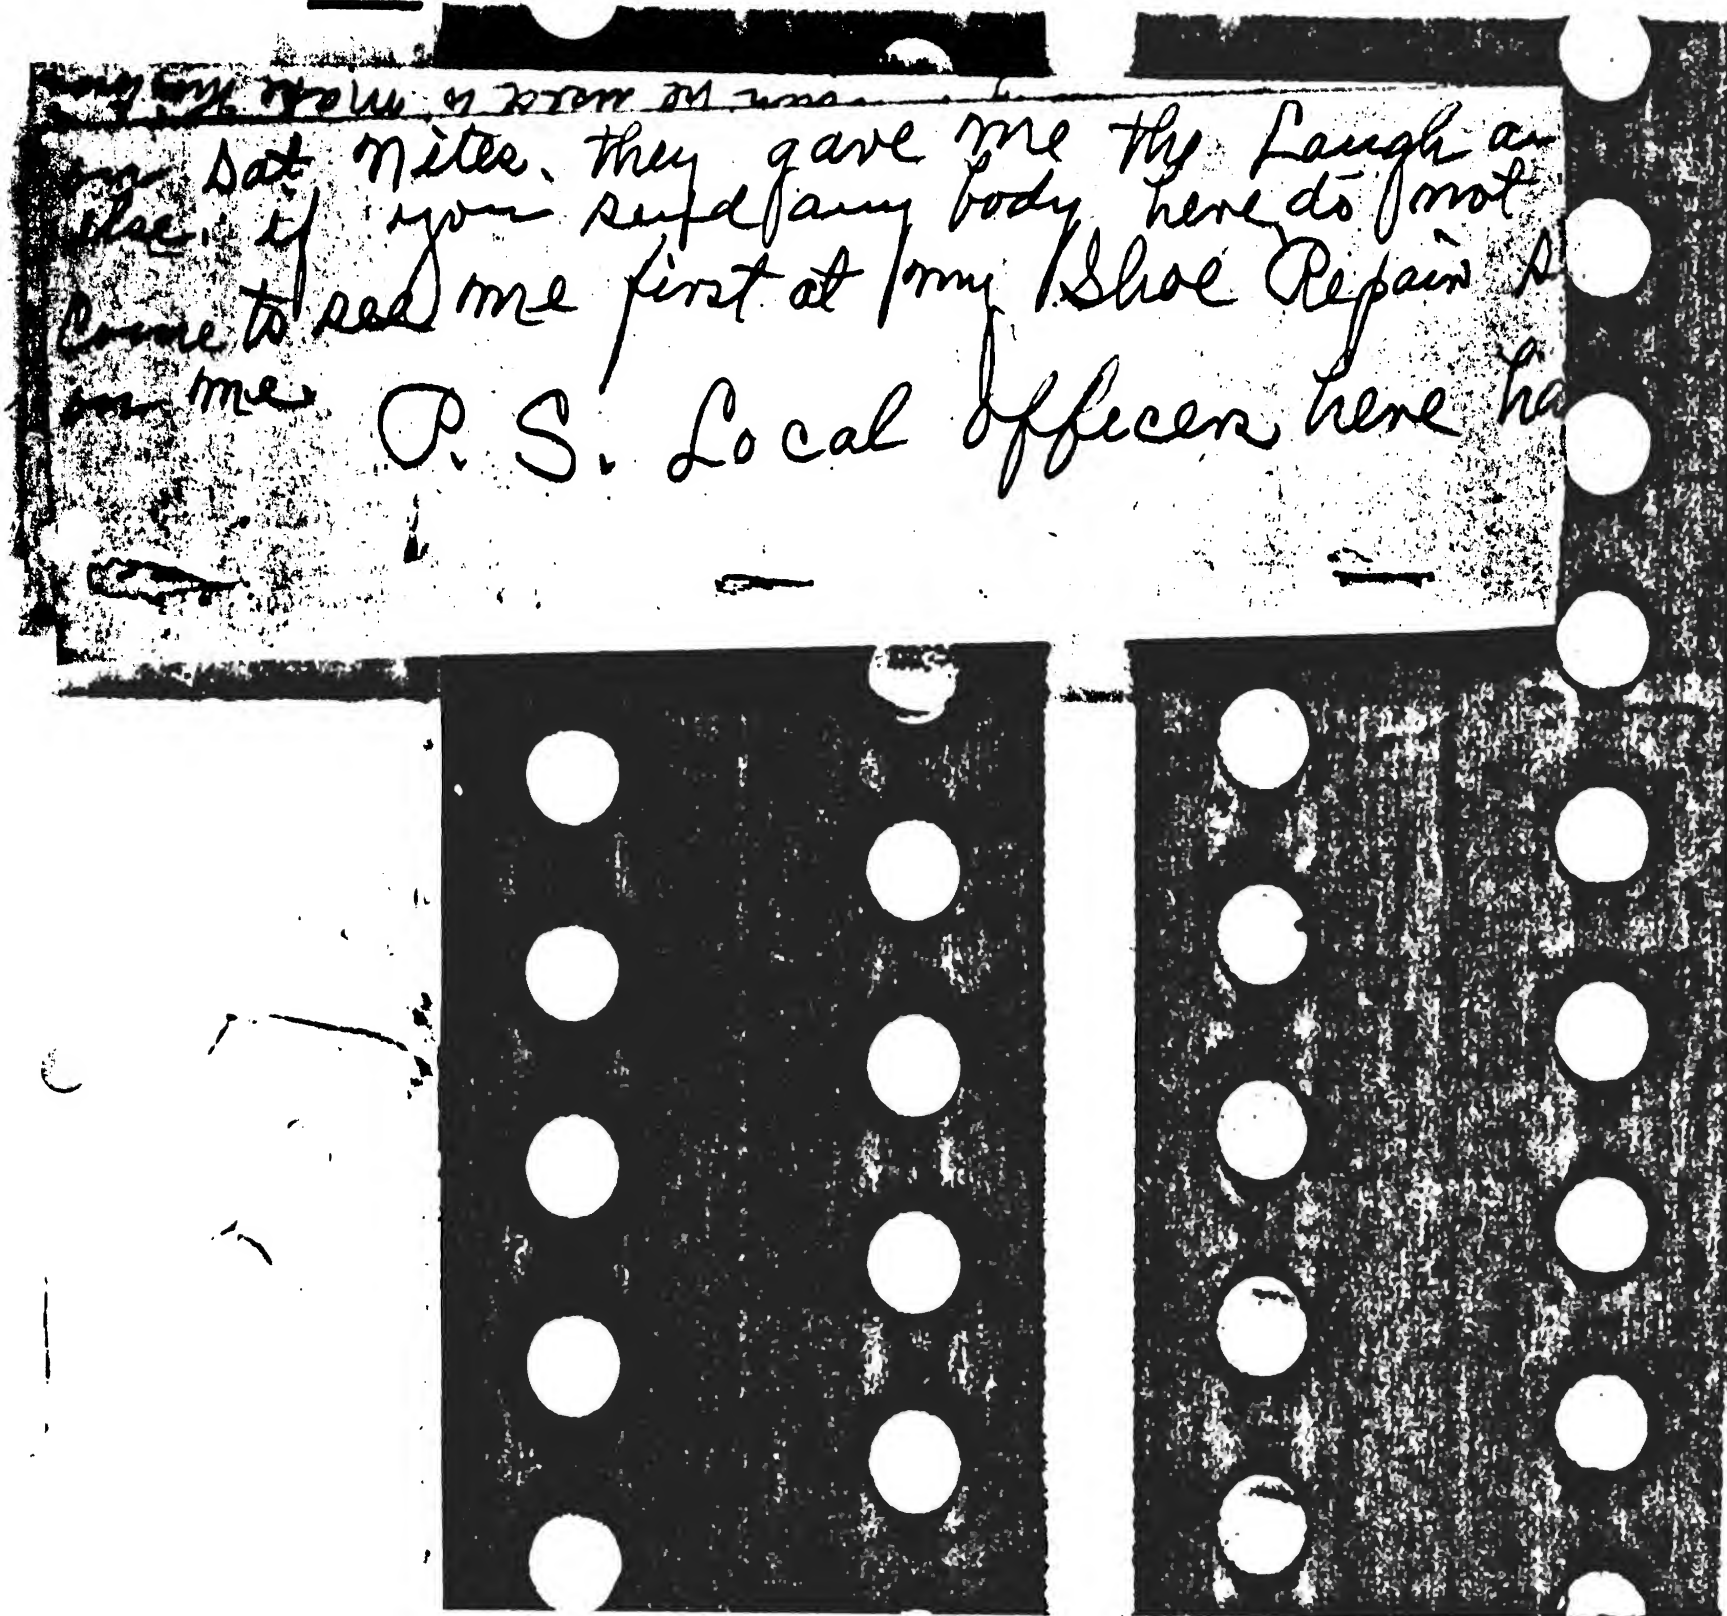 he used to make
on Sat nites. they gave me the Laugh
else. if you send any body here do not
Come to see me first at my Shoe Repair
on me.
P. S. Local officers here